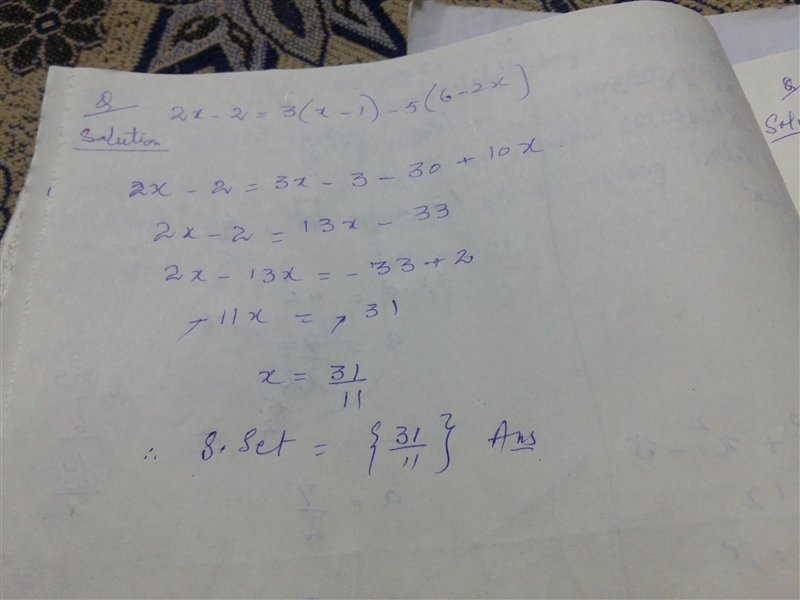 Q 2x - 2 = 3(x - 1) - 5(6 - 2x)
Solution
2x - 2 = 3x - 3 - 30 + 10x
2x - 2 = 13x - 33
2x - 13x = - 33 + 2
- 11x = - 31
x = 31/11
∴ S. Set = {31/11} Ans
Q